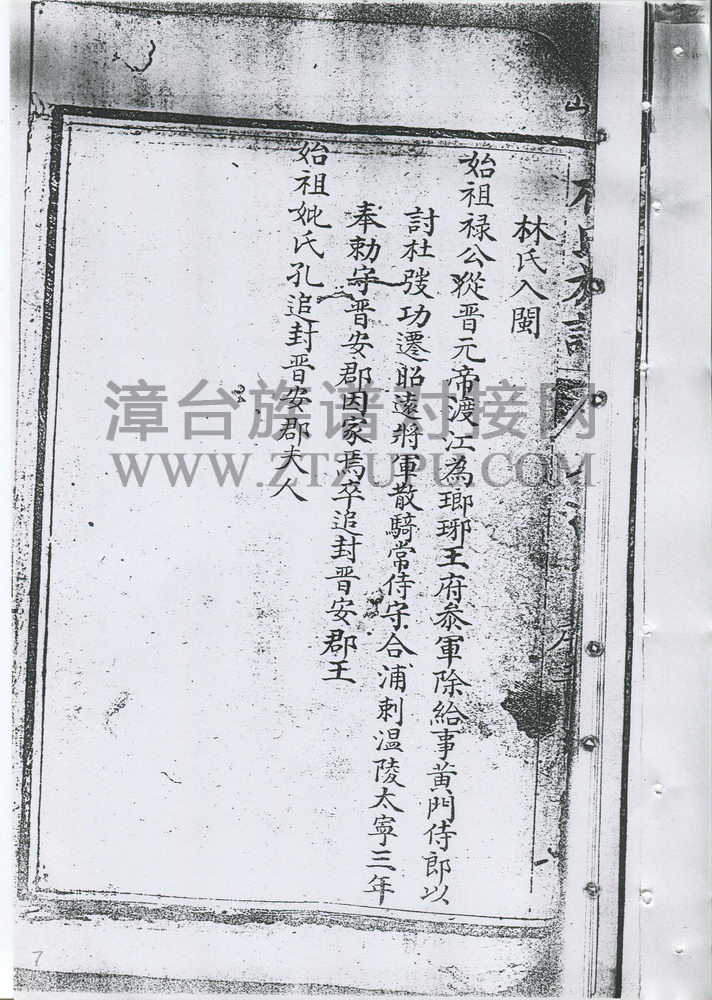 林氏入閩
始祖禄公從晋元帝渡江為瑯琊王府叅軍除給事黃門侍郎以
討杜弢功遷昭遠將軍散騎常侍守合浦刺温陵太寧三年
奉勅守晋安郡因家焉卒追封晋安郡王
始祖妣氏孔追封晋安郡夫人
漳台族谱对接网
WWW.ZTZUPU.COM
7